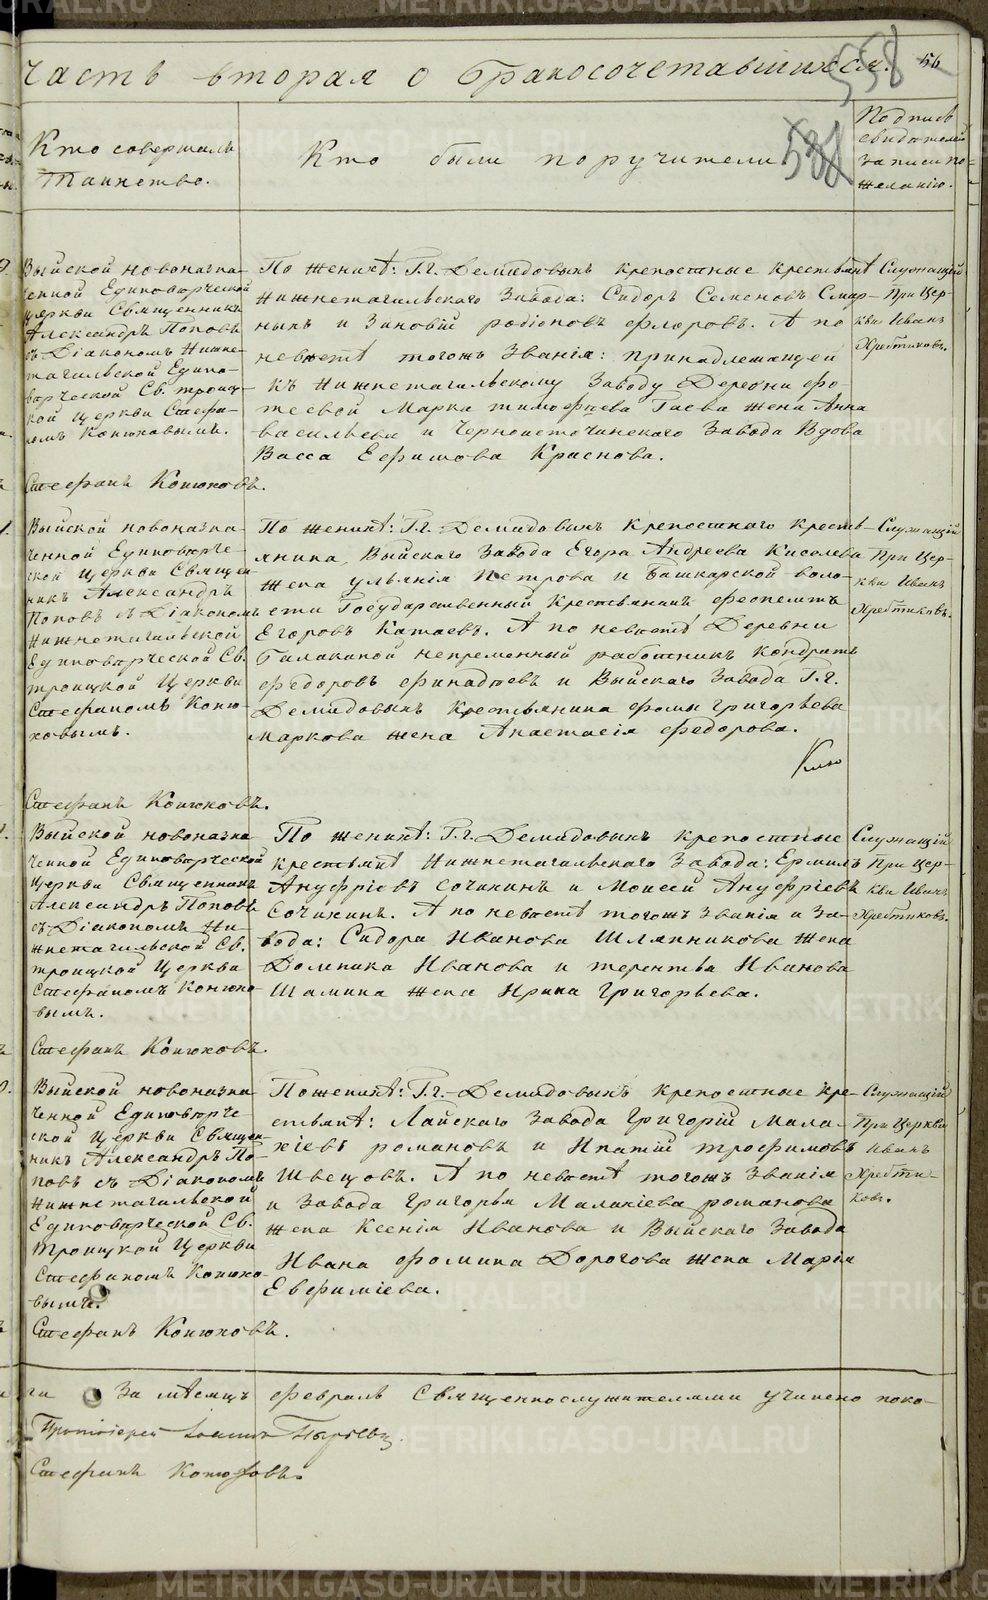 часть вторая о бракосочетавшихся.
558
56
538
Кто совершалъ
таинство.
Кто были поручители
Подпись
свидѣтелей
записи по
желанію.
Выйской новоназна-
ченной Единовѣрческой
Церкви Священникъ
Александръ Поповъ
съ Діакономъ Нижне-
тагильской Едино-
вѣрческой Св. троиц-
кой Церкви Стефа-
номъ Конюховымъ.
Стефанъ Конюховъ.
По женихѣ: Г.г. Демидовыхъ крепостные крестьянѣ
Нижнетагильскаго Завода: Сидоръ Семеновъ Смир-
ныхъ и Зиновій родіоновъ флоровъ. А по
невѣстѣ тогожъ Званія: принадлежащей
къ Нижнетагильскому Заводу Деревни фо-
теевой Марка тимофѣева Гаева жена Анна
васильева и Черноисточинскаго Завода Вдова
Васса Ефимова Краснова.
Служащій
При Цер-
кви Иванъ
Хребтиковъ.
Выйской новоназна-
ченной Единовѣрче-
ской Церкви Священ-
никъ Александръ
Поповъ съ Діакономъ
Нижнетагильской
Единовѣрческой Св.
троицкой Церкви
Стефаномъ Коню-
ховымъ.
Стефанъ Конюховъ.
По женихѣ: Г.г. Демидовыхъ Крепостнаго Кресть-
янина, Выйскаго Завода Егора Андреева Киселева
жена ульянія Петрова и Башкарской воло-
сти Государственный Крестьянинъ феопемптъ
Егоровъ Катаевъ. А по невѣстѣ Деревни
Галакиной непременный работникъ Кондратъ
федоровъ финадѣевъ и Выйскаго Завода Г.г.
Демидовыхъ Крестьянина фомы григорьева
Маркова жена Анастасія федорова.
Служащій
При Цер-
кви Иванъ
Хребтиковъ.
Выйской новоназна
ченной Единовѣрческой
Церкви Священникъ
Александръ Поповъ
съ Діакономъ Ни-
жнетагильской Св.
троицкой Церкви
Стефаномъ Конюхо-
вымъ.
Стефанъ Конюховъ.
По женихѣ: Г.г. Демидовыхъ крепостные
крестьянѣ Нижнетагильскаго Завода: Ермилъ
Ануфріевъ Сочихинъ и Моисей Ануфріевъ
Сочихинъ. А по невѣстѣ тогожъ званія и За-
вода: Сидора Иванова Шляпникова Жена
Домника Иванова и терентья Иванова
Шамина Жена Ирина Григорьева.
Служащій
При Цер-
кви Иванъ
Хребтиковъ.
Выйской новоназна
ченной Единовѣрче
ской Церкви Священ-
никъ Александръ По-
повъ съ Діакономъ
Нижнетагильской
Единовѣрческой Св.
Троицкой Церкви
Стефаномъ Конюхо-
вымъ.
Стефанъ Конюховъ.
По женихѣ: Г.г. Демидовыхъ крепостные кре-
стьянѣ: Лайскаго Завода Григорій Мала-
хіевъ романовъ и Ипатій трофимовъ
Швецовъ. А по невѣстѣ тогожъ Званія
и Завода Григорья Малахіева романова
жена Ксенія Иванова и Выйскаго Завода
Ивана фомина Дорогова жена Марія
Евфиміева.
Служащій
При Церкви
Иванъ
Хребти-
ковъ.
За мѣсяцъ февраль Священнослужителями учинено поко-
Протоіерей Іоаннъ Пырьевъ
Стефанъ Конюховъ.
METRIKI.GASO-URAL.RU